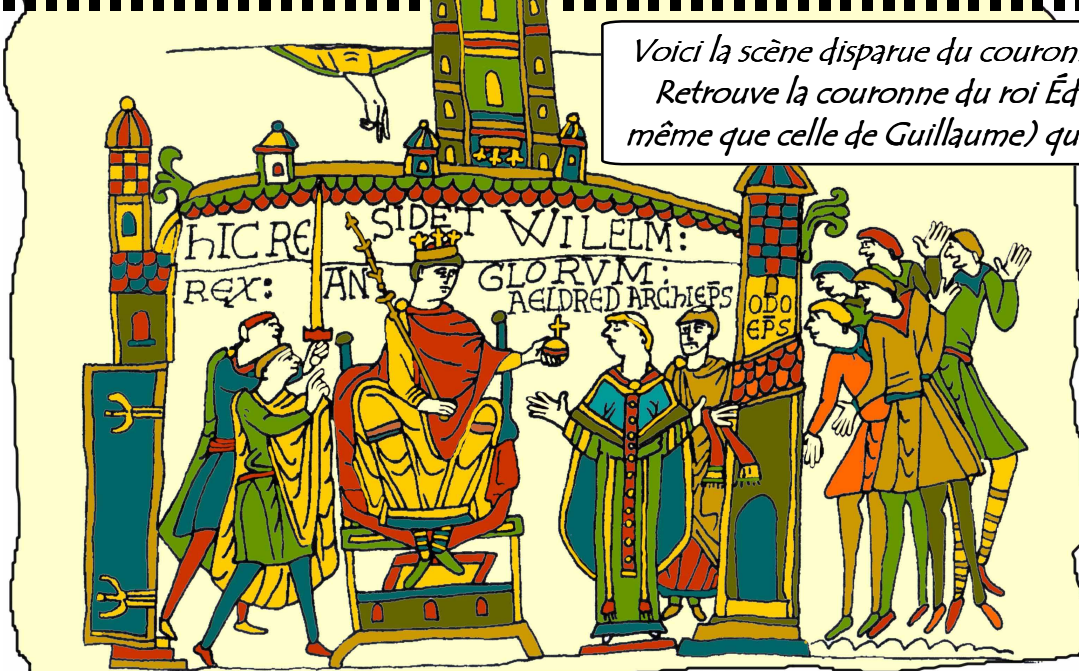 Voici la scène disparue du couron
Retrouve la couronne du roi Éd
même que celle de Guillaume) qu
hIC RE SIDET WILELM:
REX: AN GLORVM:
AELDRED ARChIEPS
ODO
EPS